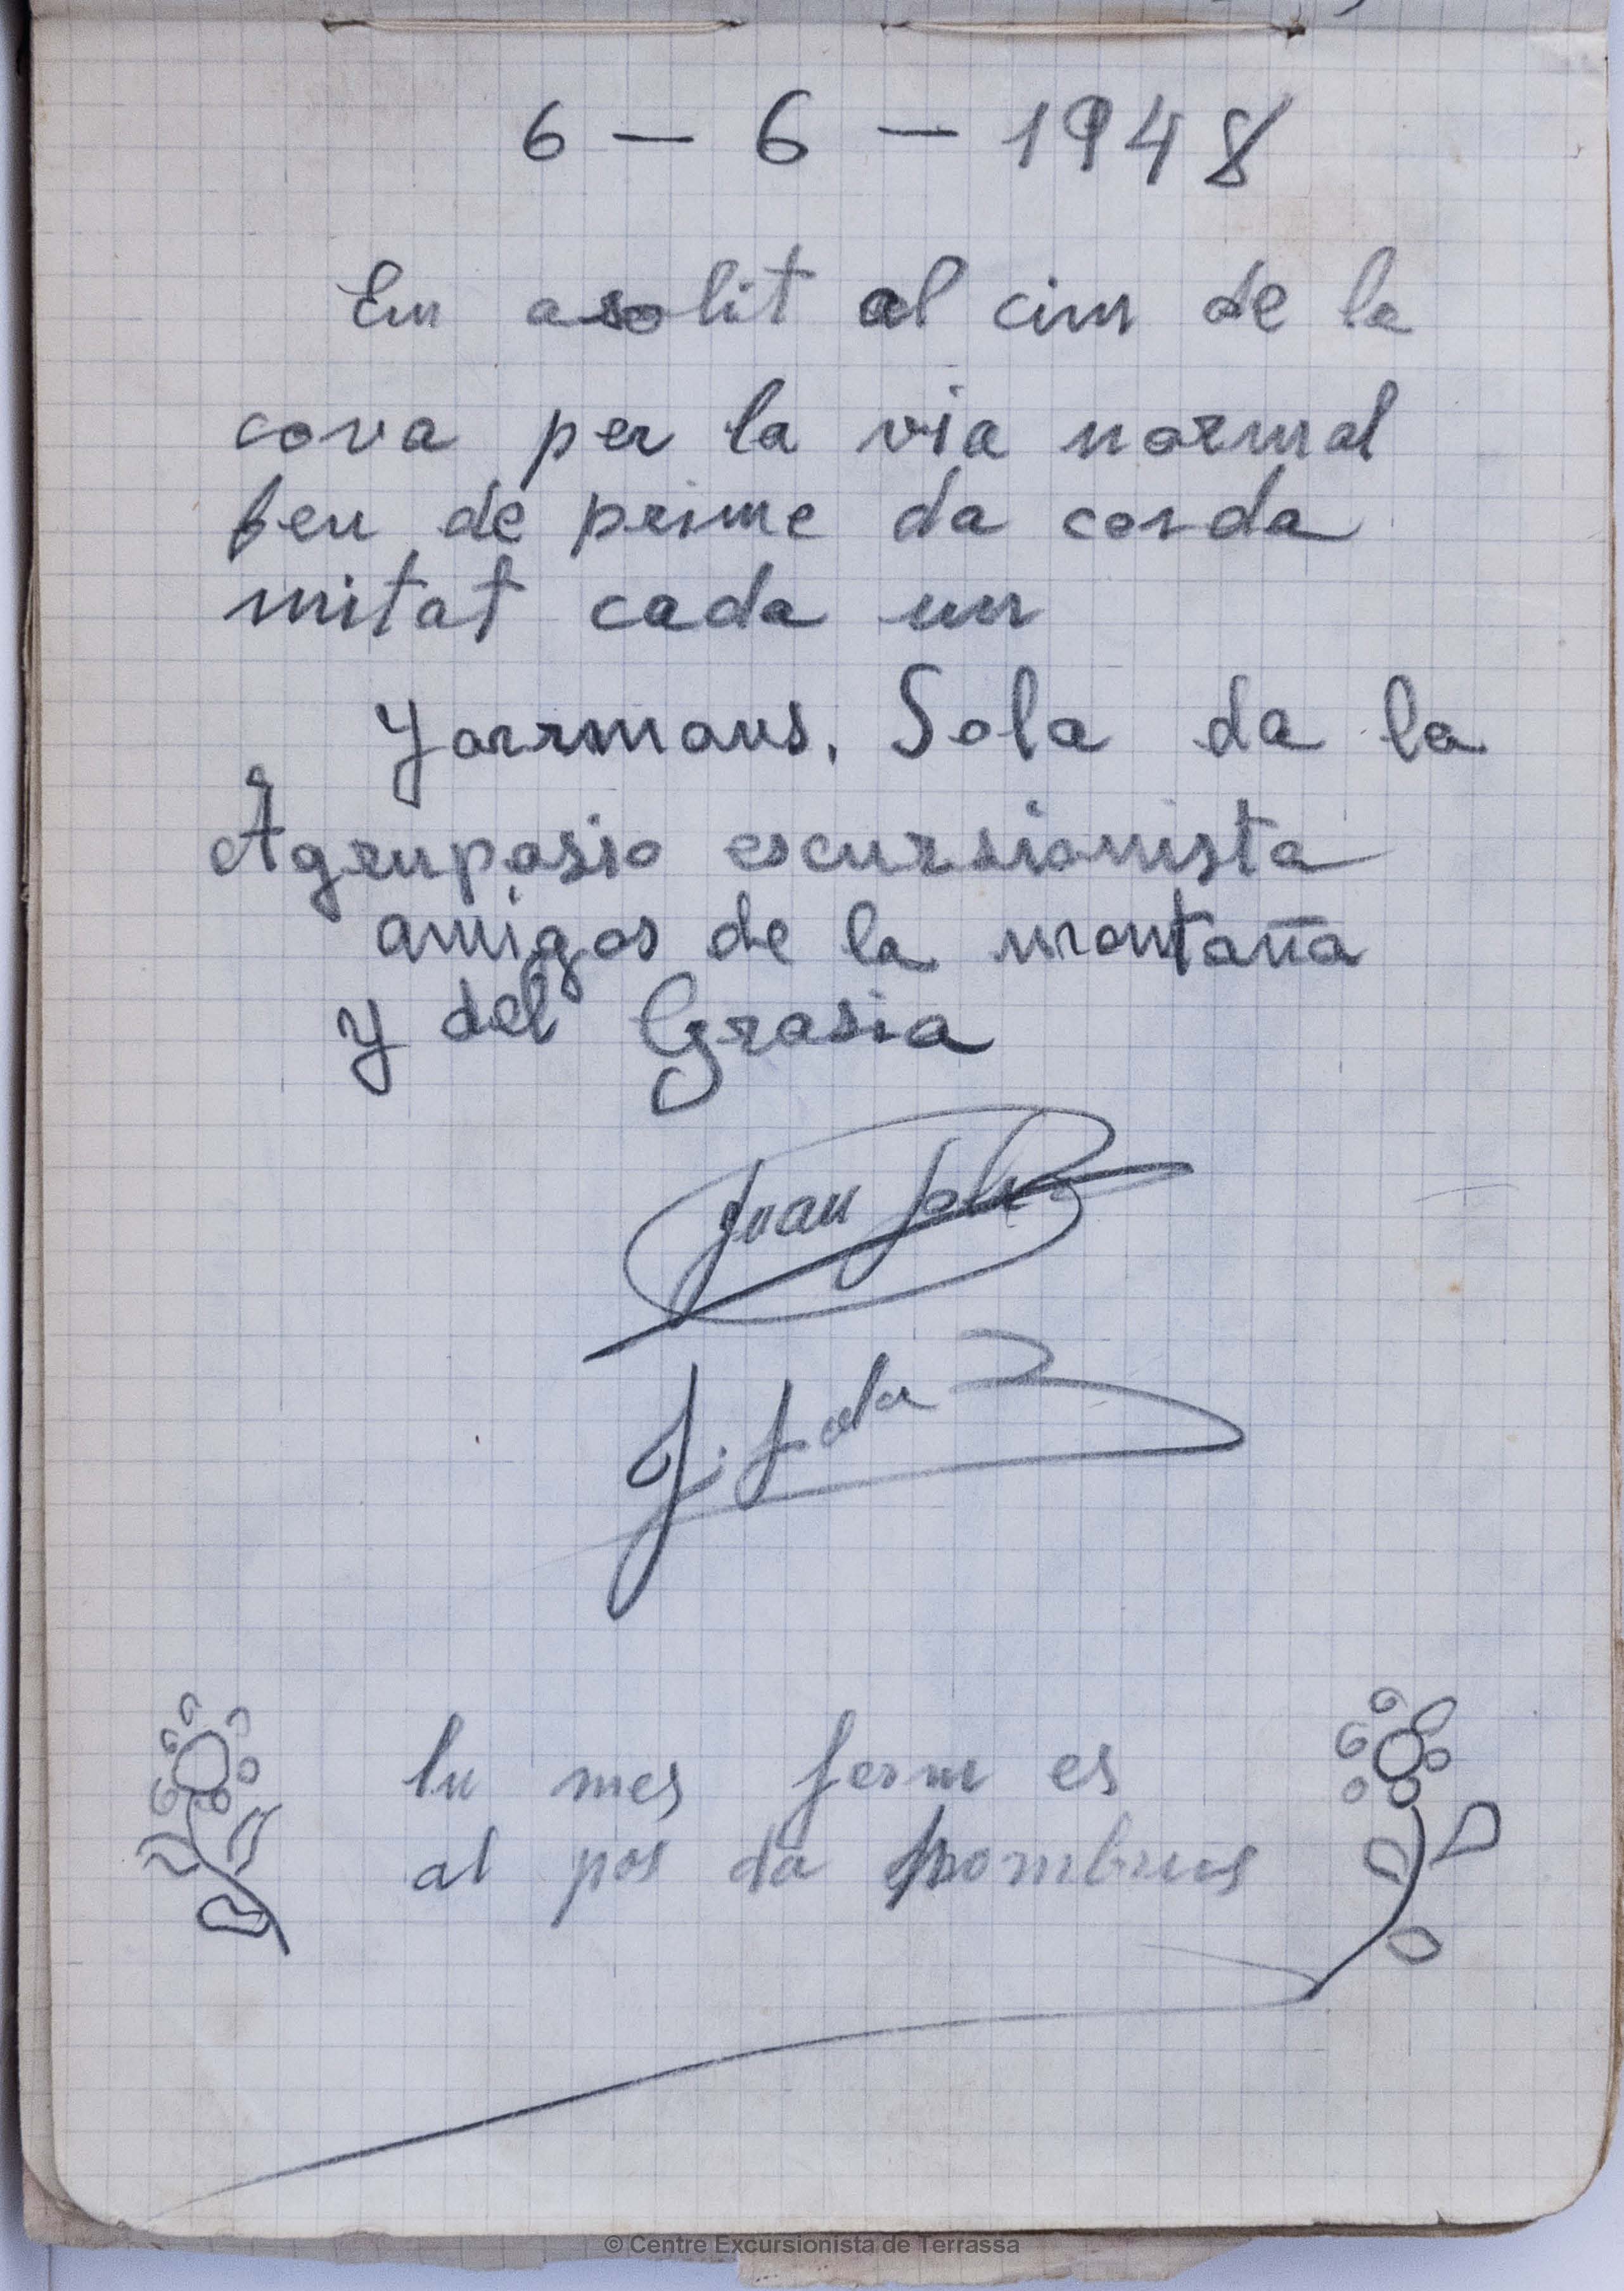 6 - 6 - 1948
Em asolit al cim de la
cova per la via normal
feu de prime da corda
mitat cada un
Yarrmans. Sola da la
Agrupasio escursionista
amigos de la montaña
y del Grasia
Juan Sola
J. Sola
lu mes ferm es
al pas da
© Centre Excursionista de Terrassa